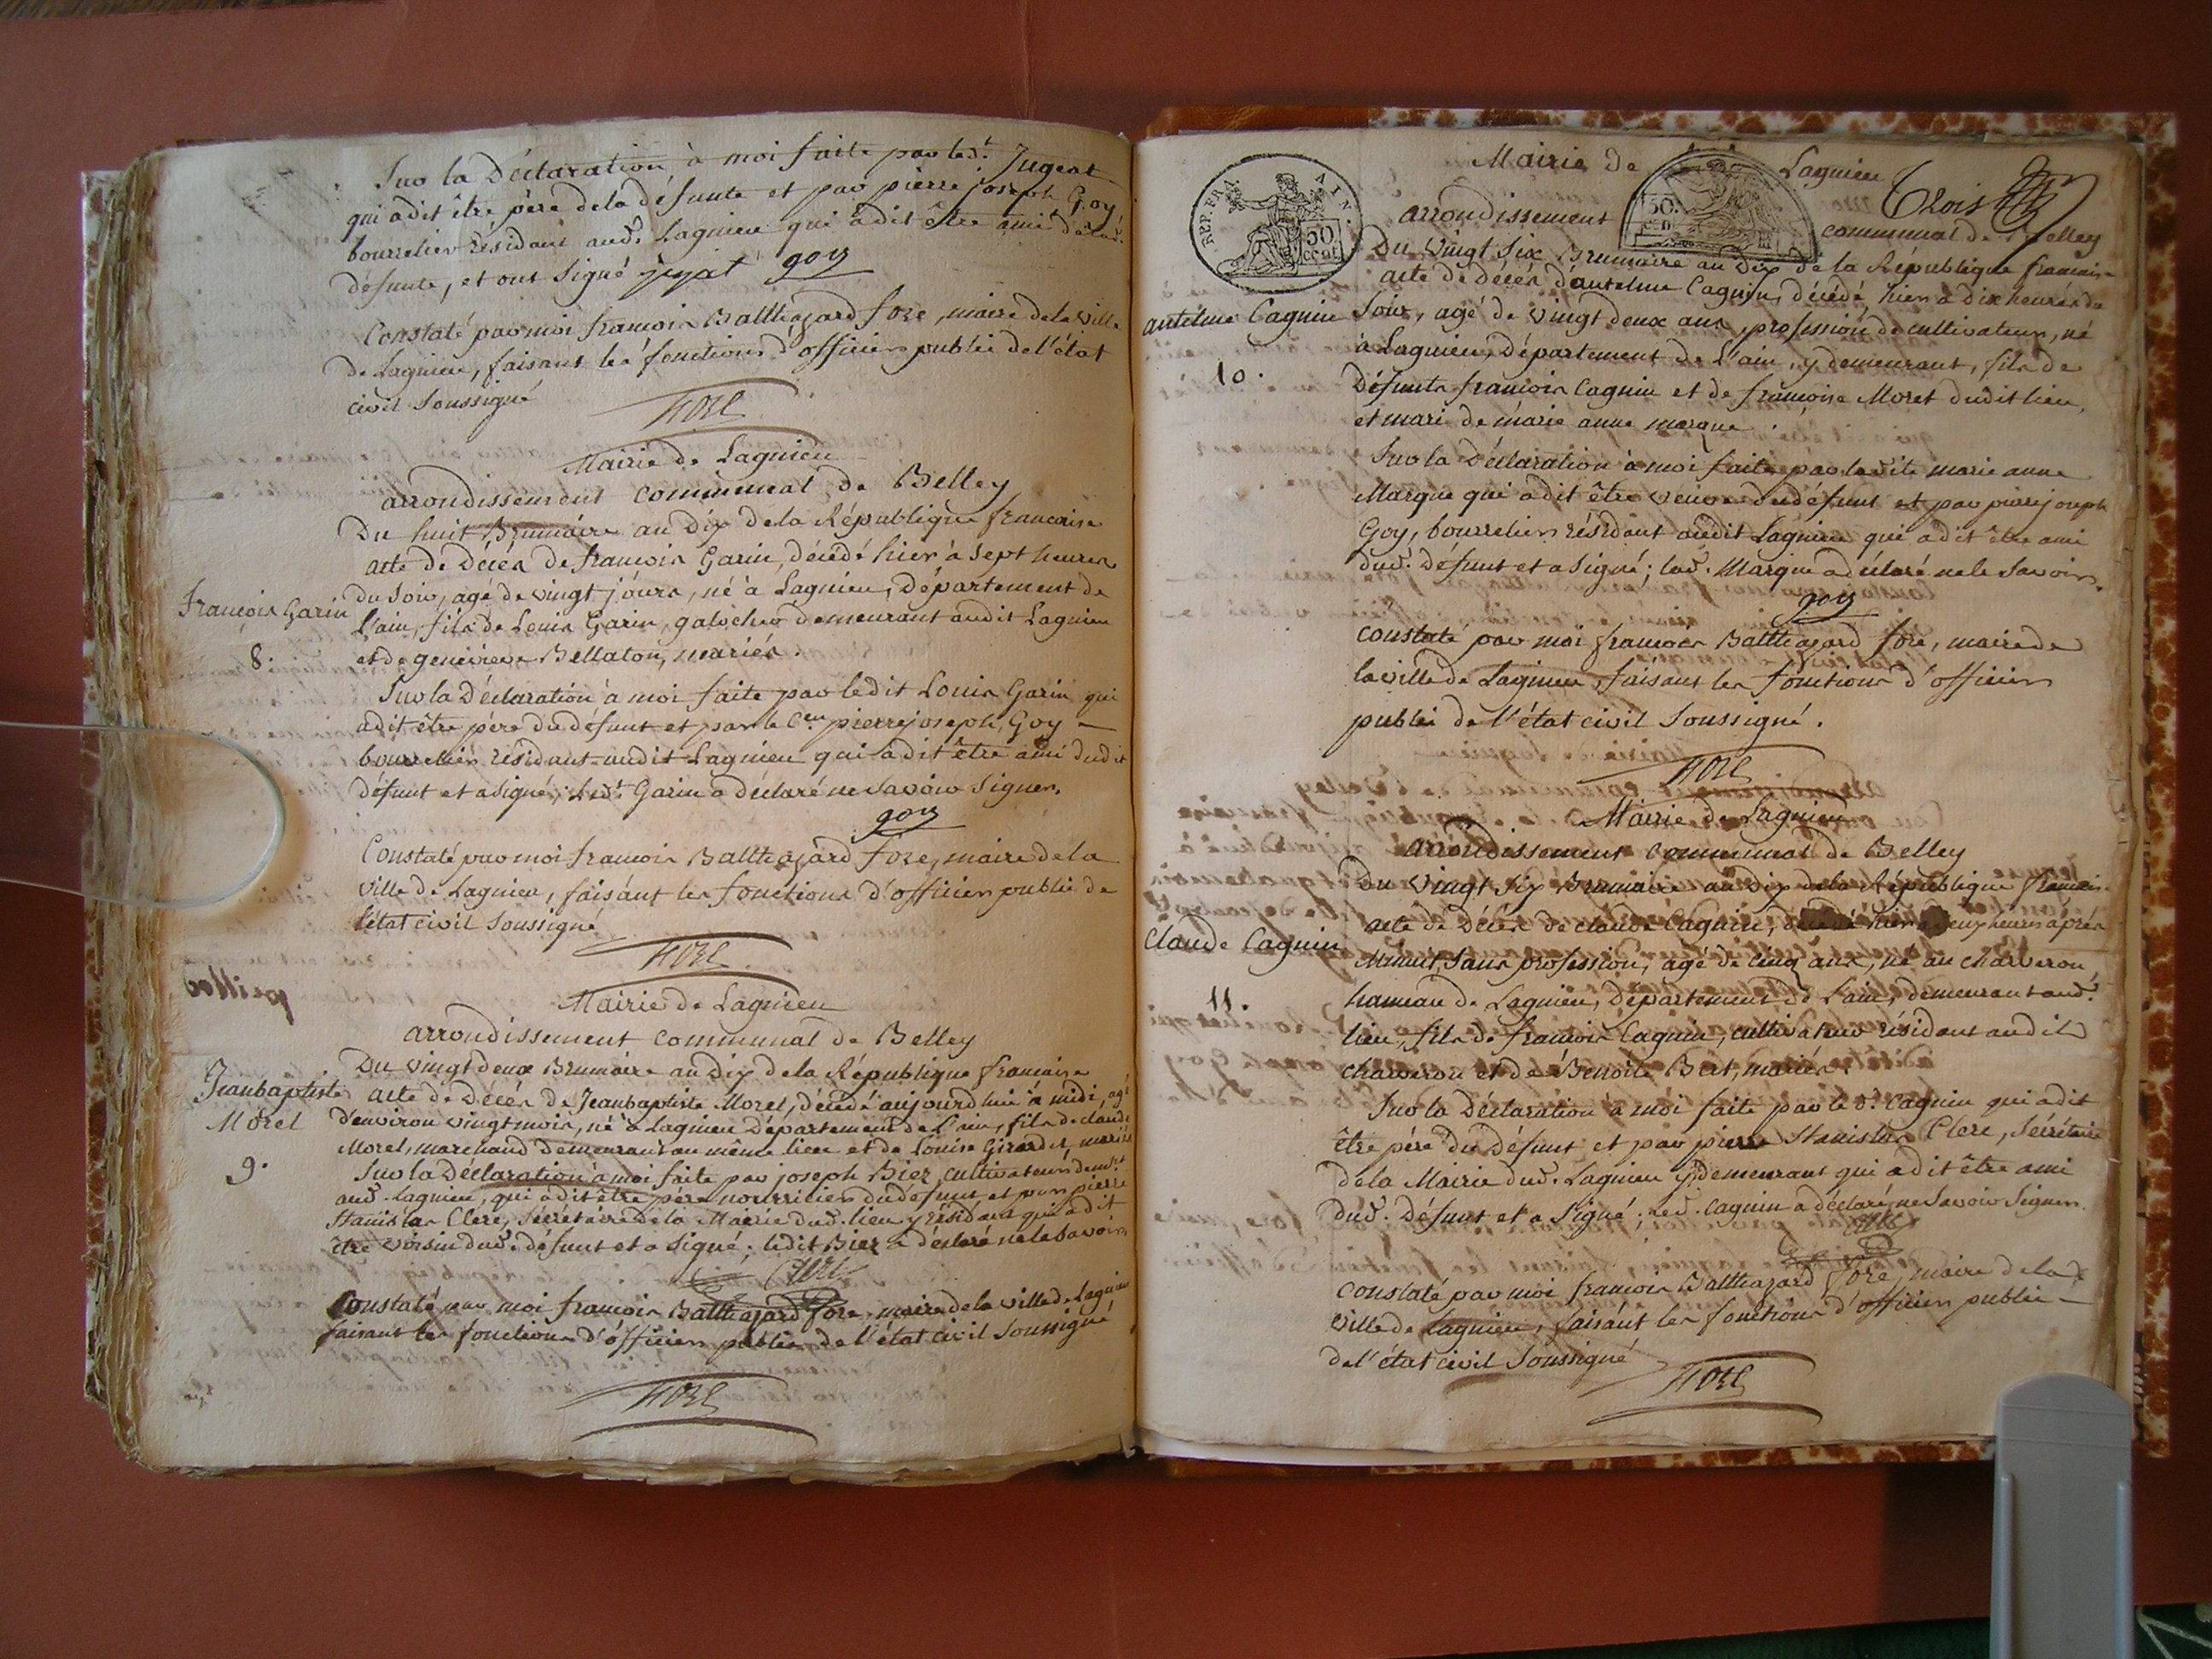 Sur la Déclaration à moi faite par led.t Jugeat
qui a dit être père de la défunte et par pierre joseph Goy,
bourrelier résidant aud. Lagnieu qui a dit être ami de lad.
défunte, et ont signé jujat goy
Constaté par moi françois Balthazard fore, maire de la ville
de Lagnieu, faisant les fonctions d'officier public de l'état
civil soussigné
fore
Mairie de Lagnieu
arrondissement communal de Belley
Du huit Brumaire an Dix de la République française
acte de Décès de françois Garin, décédé hier à sept heures
du soir, agé de vingt jours, né à Lagnieu, Département de
françois Garin
l'ain, fils de Louis Garin, galocher demeurant audit Lagnieu
8.
et de genevieve Bellaton, mariés.
Sur la Déclaration à moi faite par ledit Louis Garin qui
a dit être père du défunt et par le C.en pierre joseph Goy
bourrelier résidant audit Lagnieu qui a dit être ami dudit
défunt et a signé; led.t Garin a déclaré ne savoir signer.
goy
Constaté par moi françois Balthazard fore, maire de la
ville de Lagnieu, faisant les fonctions d'officier public de
l'état civil soussigné
fore
Mairie de Lagnieu
arrondissement communal de Belley
Du vingt deux Brumaire an Dix de la République française
Jeanbaptiste
acte de Décès de Jeanbaptiste Morel, décédé aujourd'hui à midi, agé
Morel
d'environ vingt mois, né à Lagnieu Département de l'ain, fils de claude
Morel, marchand demeurant au même lieu et de Louise Girardet, mariés
9.
Sur la Déclaration à moi faite par joseph Biez, cultivateur demt.
aud. Lagnieu, qui a dit être père nourricier du défunt et par pierre
Stanislas Clerc, Sécrétaire de la Mairie dud. lieu y résidant qui a dit
être voisin dud. défunt et a signé; ledit Biez a déclaré ne le savoir
Clerc
Constaté par moi françois Balthazard fore, maire de la ville de Lagnieu
faisant les fonctions d'officier public de l'état civil soussigné
fore
Mairie de Lagnieu
Trois
REP. FRA. AIN.
50 cent
50.
arrondissement communal de Belley
Du vingt six Brumaire an Dix de la République française
acte de décès d'antelme Cagnin, décédé hier à dix heures du
antelme Cagnin
soir, agé de vingt deux ans, profession de cultivateur, né
à Lagnieu, Département de l'ain, y demeurant, fils de
10.
défunts françois Cagnin et de françoise Moret dudit lieu,
et mari de marie anne marque.
Sur la Déclaration à moi faite par ladite marie anne
Marque qui a dit être veuve du défunt et par pierre joseph
Goy, bourrelier résidant audit Lagnieu qui a dit être ami
dud. défunt et a signé; lad. Marque a déclaré ne le savoir.
goy
constaté par moi françois Balthazard fore, maire de
la ville de Lagnieu, faisant les fonctions d'officier
public de l'état civil soussigné.
fore
Mairie de Lagnieu
arrondissement communal de Belley
Du vingt six Brumaire an Dix de la République française
acte de Décès de claude Cagnin, décédé hier à deux heures après
Claude Cagnin
Minuit, sans profession, agé de cinq ans, né au charveron
11.
hameau de Lagnieu, Département de l'ain, demeurant aud.
lieu, fils de françois Cagnin, cultivateur résidant audit
charveron et de Benoite Bert, mariés.
Sur la Déclaration à moi faite par le d. Cagnin qui a dit
être père du défunt et par pierre Stanislas Clerc, Sécrétaire
de la Mairie dud. Lagnieu y demeurant qui a dit être ami
dud. Défunt et a signé; led. Cagnin a déclaré ne savoir signer.
Clerc
constaté par moi françois Balthazard fore, maire de la
ville de Lagnieu, faisant les fonctions d'officier public
de l'état civil soussigné
fore